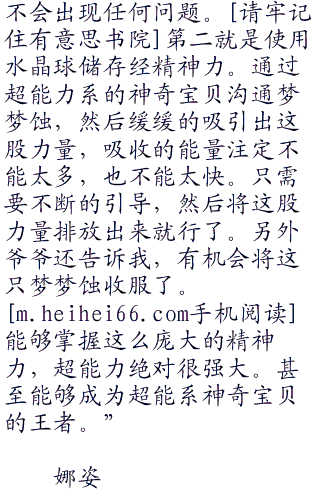 不会出现任何问题。[请牢记
住有意思书院]第二就是使用
水晶球储存经精神力。通过
超能力系的神奇宝贝沟通梦
梦蚀，然后缓缓的吸引出这
股力量，吸收的能量注定不
能太多，也不能太快。只需
要不断的引导，然后将这股
力量排放出来就行了。另外
爷爷还告诉我，有机会将这
只梦梦蚀收服了。
[m.heihei66.com手机阅读]
能够掌握这么庞大的精神
力，超能力绝对很强大。甚
至能够成为超能系神奇宝贝
的王者。”
娜姿